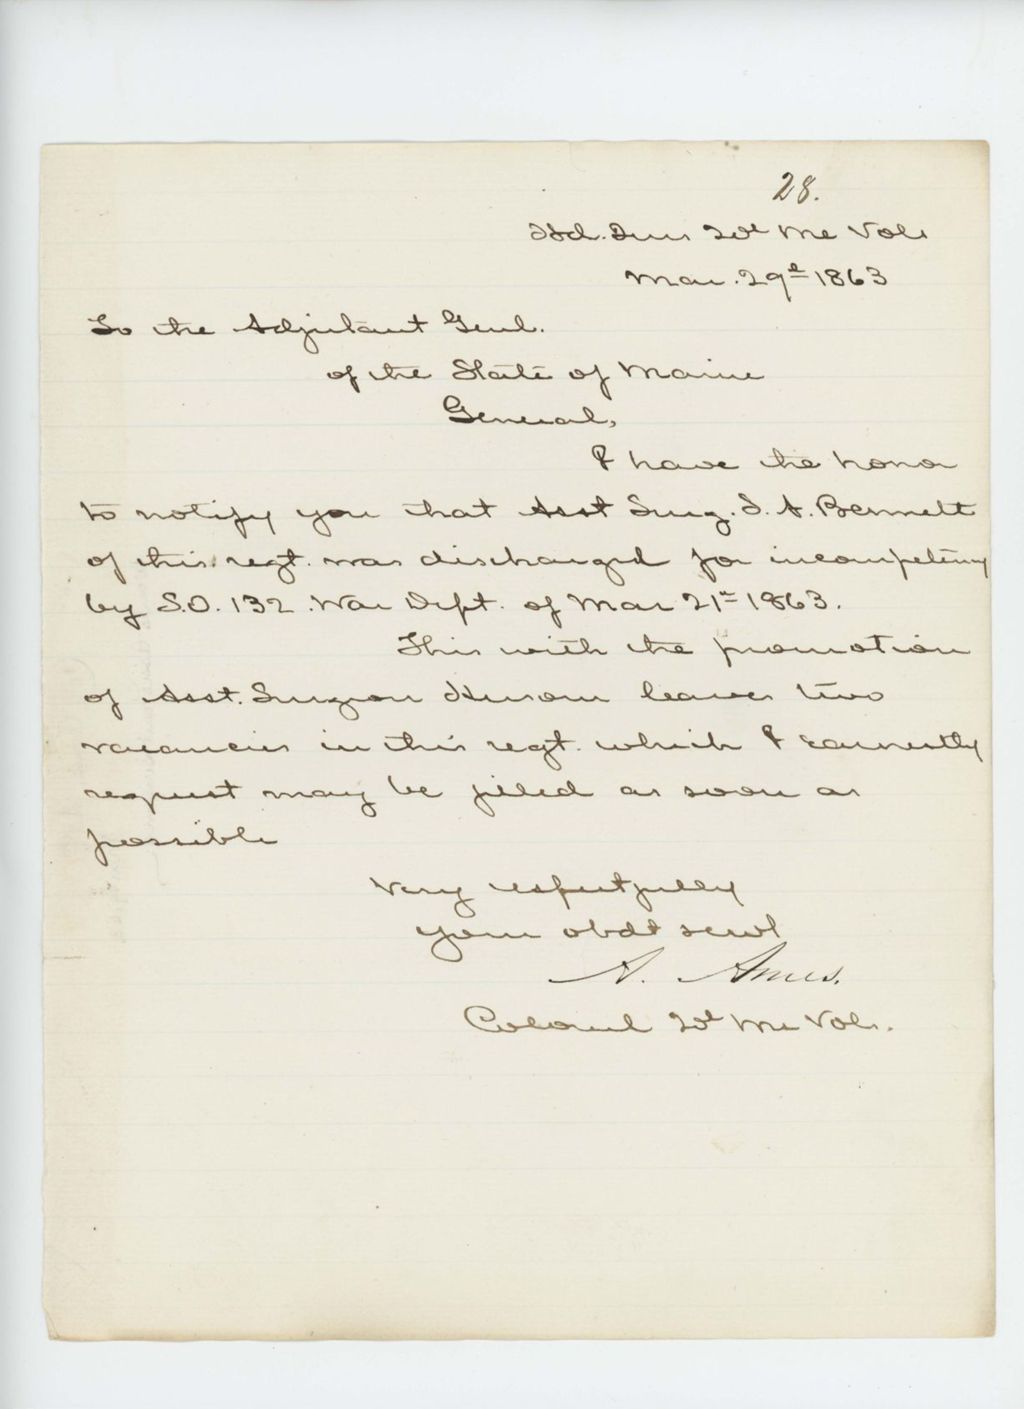 28.
Hd. Qurs 20t Me Vols
Mar. 29th 1863
To the Adjutant Genl.
of the State of Maine
General,
I have the honor
to notify you that Asst Surg. A. Bennett
of this regt. was discharged for incompetency
by S.O. 132 War Dept. of Mar 21st 1863.
This with the promotion
of Asst. Surgeon leaves two
vacancies in this regt. which I earnestly
request may be filled as soon as
possible
Very respectfully
your obdt servt
A. Ames.
Colonel 20t Me Vols.